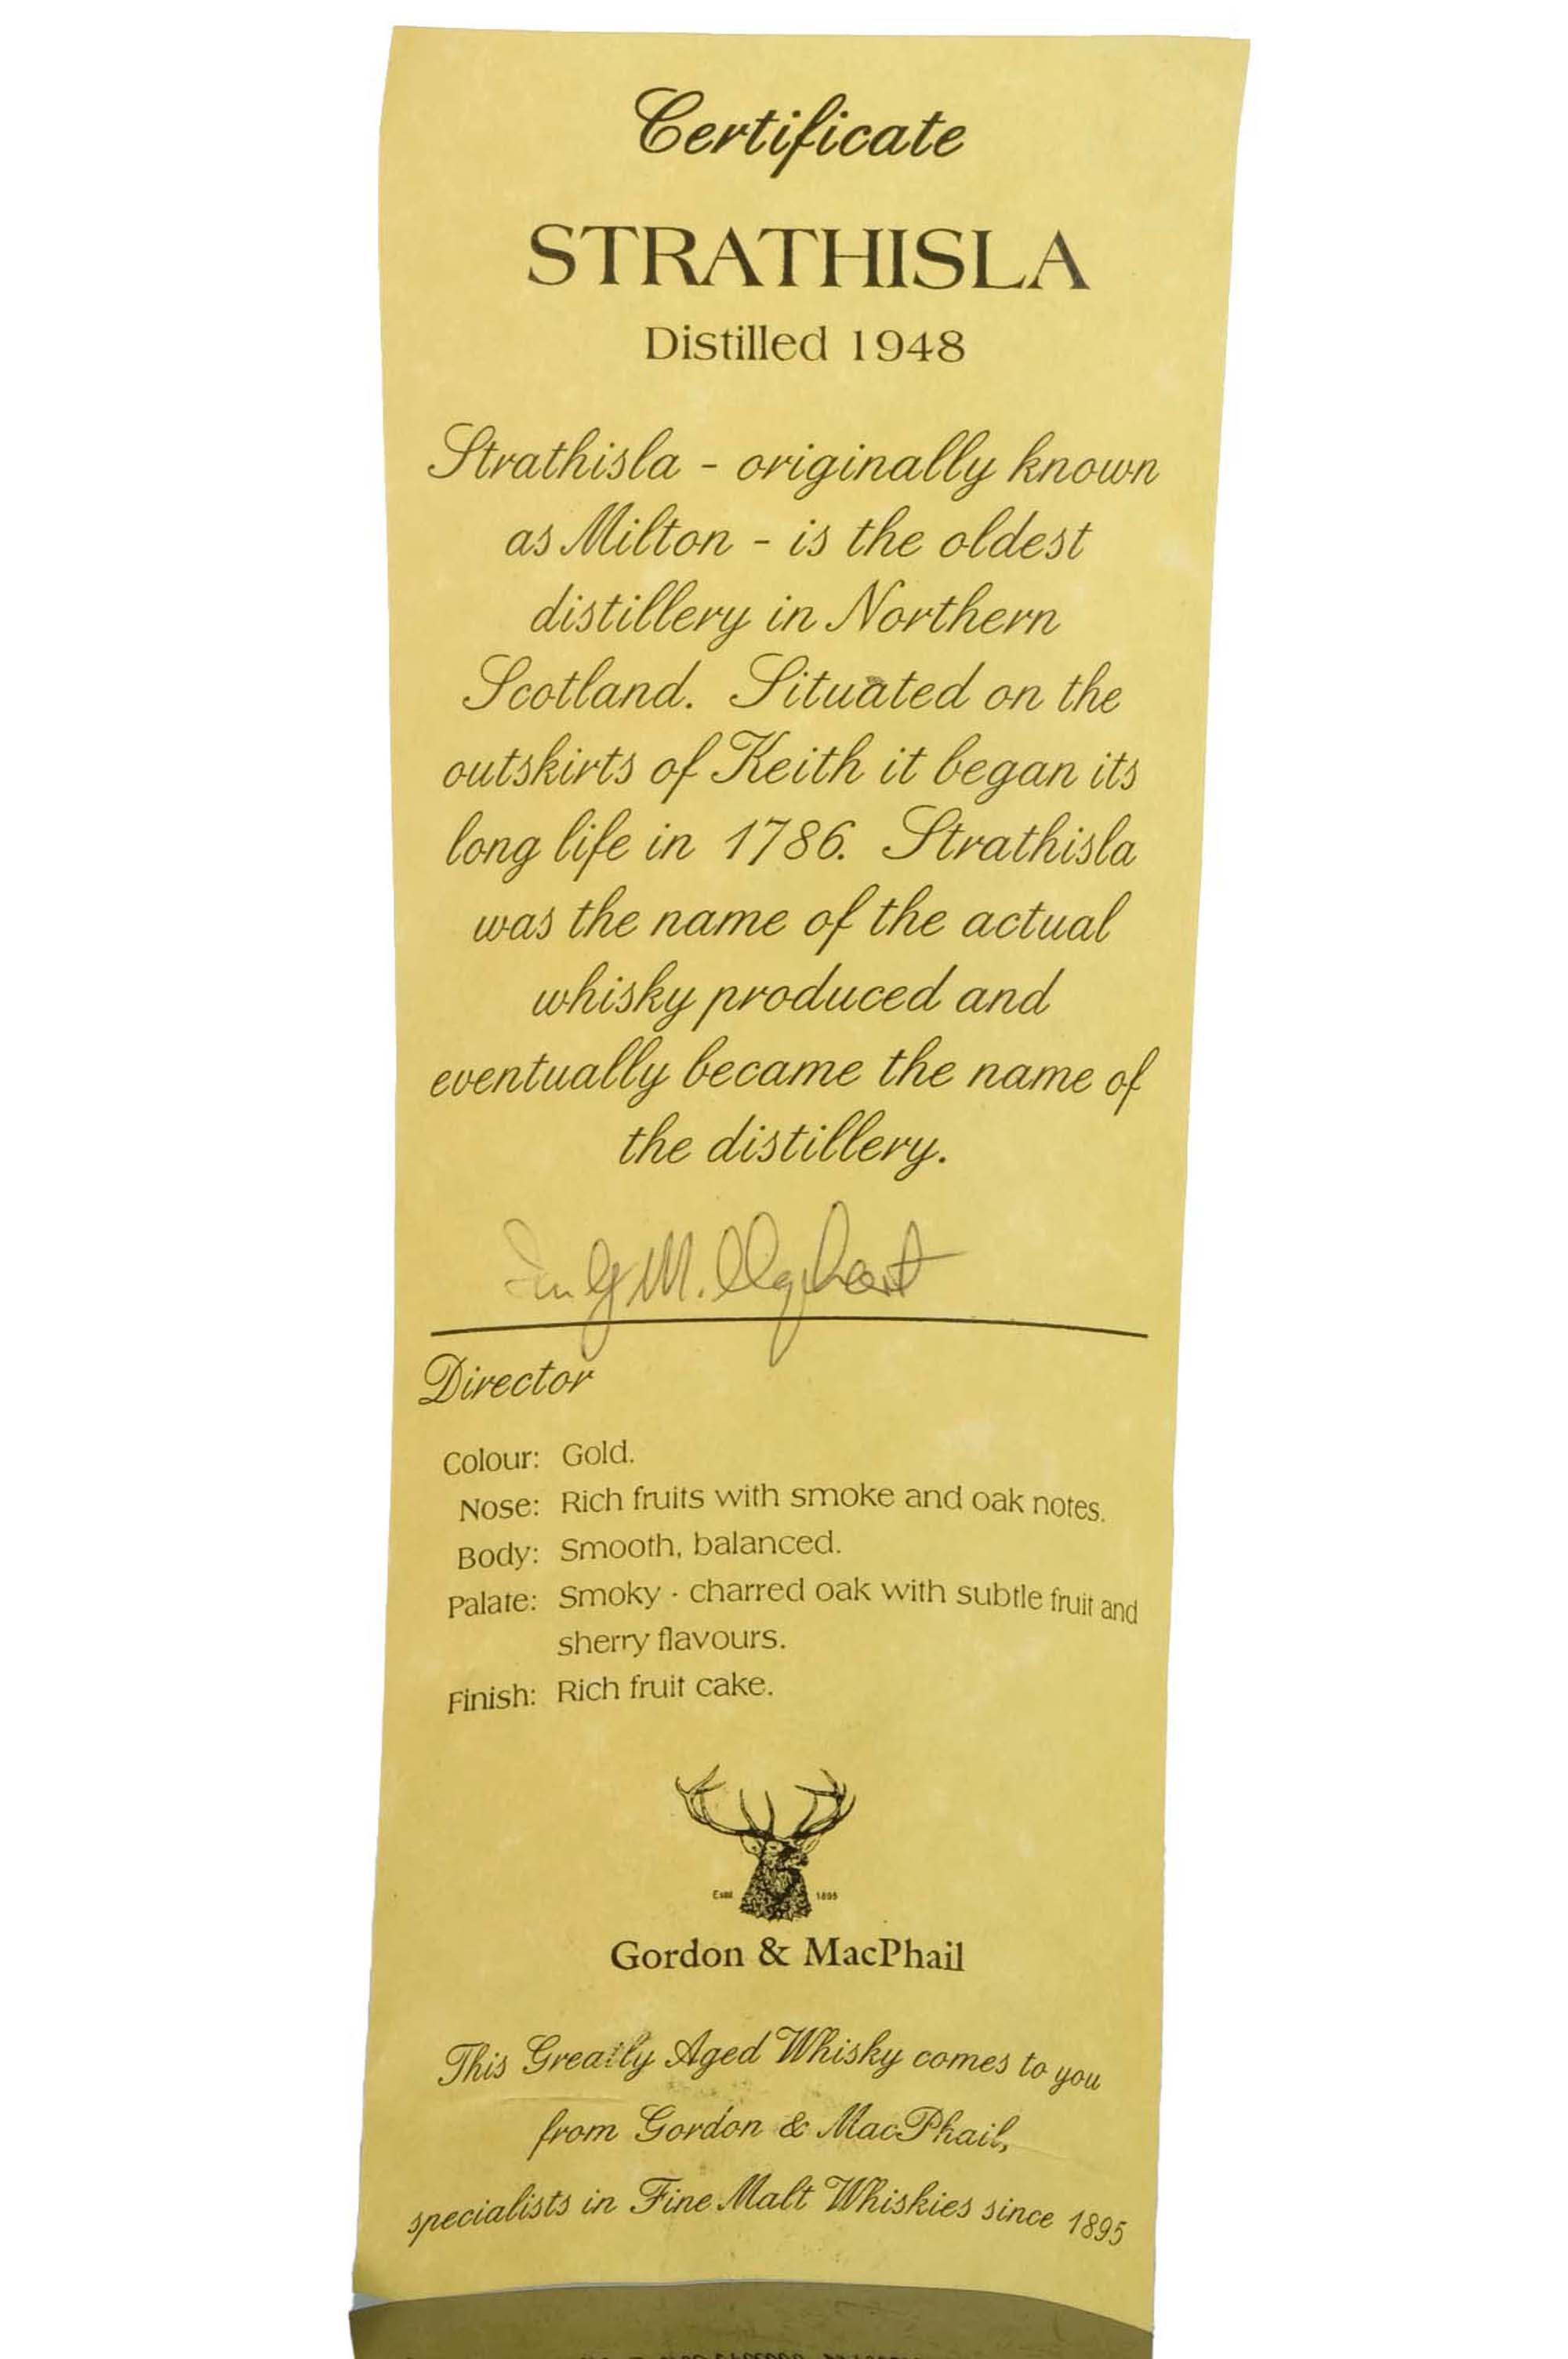 Certificate
STRATHISLA
Distilled 1948
Strathisla - originally known
as Milton - is the oldest
distillery in Northern
Scotland. Situated on the
outskirts of Keith it began its
long life in 1786. Strathisla
was the name of the actual
whisky produced and
eventually became the name of
the distillery.
M. Urquhart
Director
Colour: Gold.
Nose: Rich fruits with smoke and oak notes.
Body: Smooth, balanced.
Palate: Smoky - charred oak with subtle fruit and
sherry flavours.
Finish: Rich fruit cake.
Estd 1895
Gordon & MacPhail
This Greatly Aged Whisky comes to you
from Gordon & MacPhail,
specialists in Fine Malt Whiskies since 1895